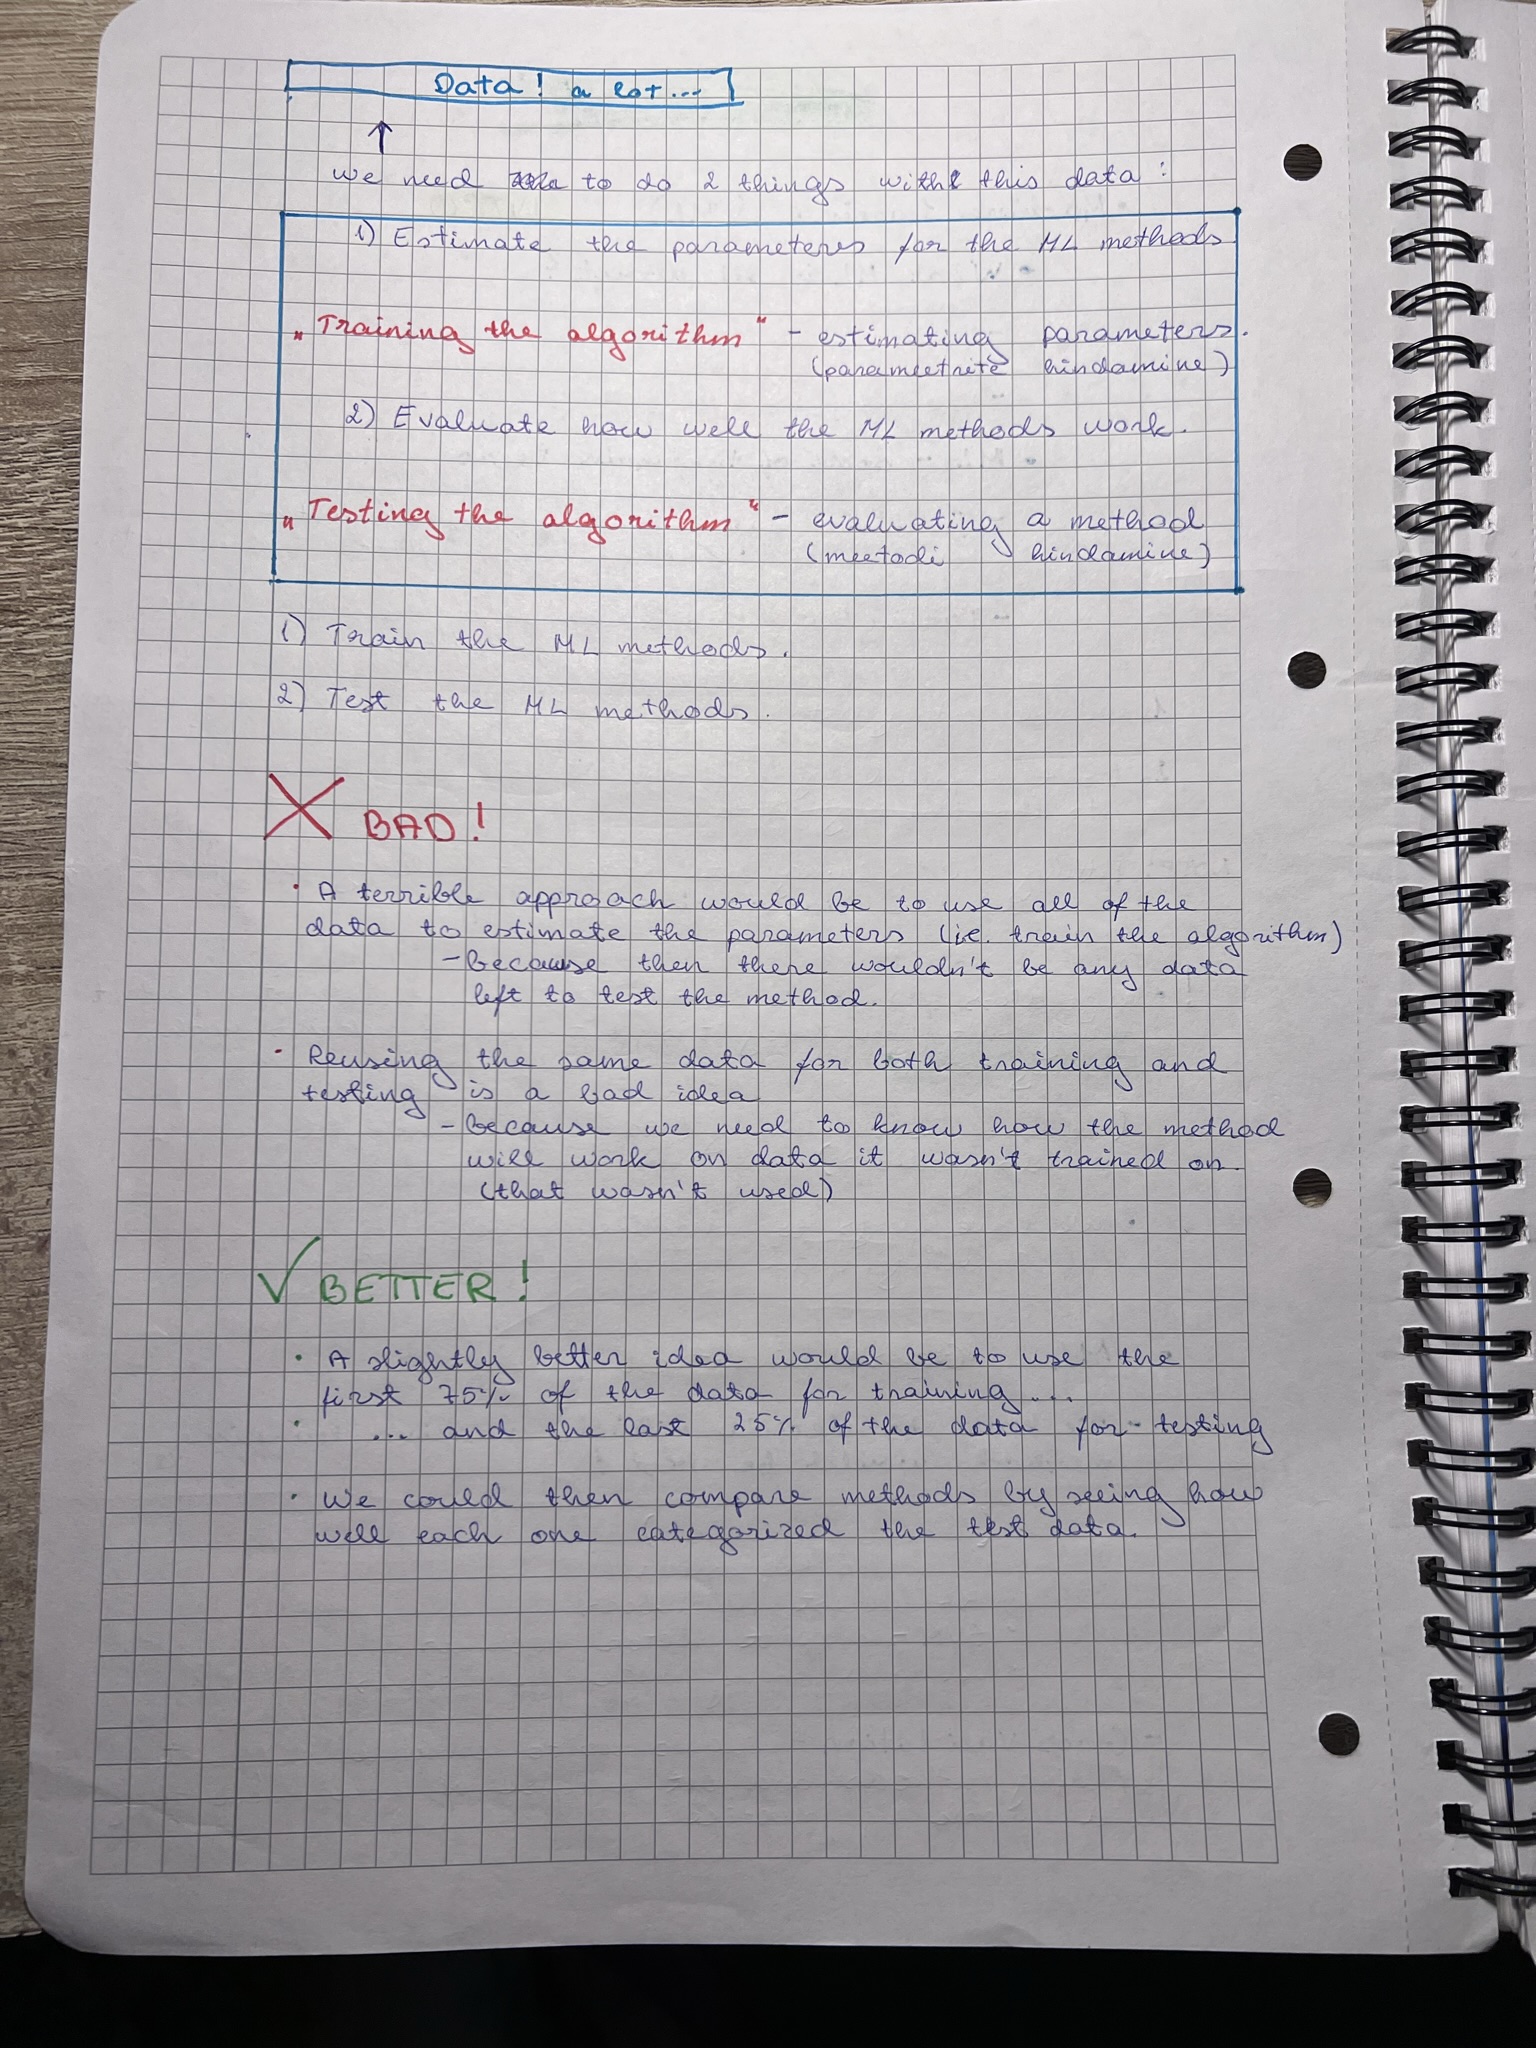 Data! a lot...
↑
We need to do 2 things with this data:
1) Estimate the parameteres for the ML methods
„Training the algorithm“ - estimating parameters.
(parameetrite hindamine)
2) Evaluate how well the ML methods work.
„Testing the algorithm“ - evaluating a method
(meetodi hindamine)
1) Train the ML methods.
2) Test the ML methods.
X BAD!
• A terrible approach would be to use all of the
data to estimate the parameters (i.e. train the algorithm)
- Because then there wouldn't be any data
left to test the method.
• Reusing the same data for both training and
testing is a bad idea
- Because we need to know how the method
will work on data it wasn't trained on.
(that wasn't used)
√ BETTER!
• A slightly better idea would be to use the
first 75% of the data for training...
• ... and the last 25% of the data for testing
• We could then compare methods by seeing how
well each one categorized the test data.